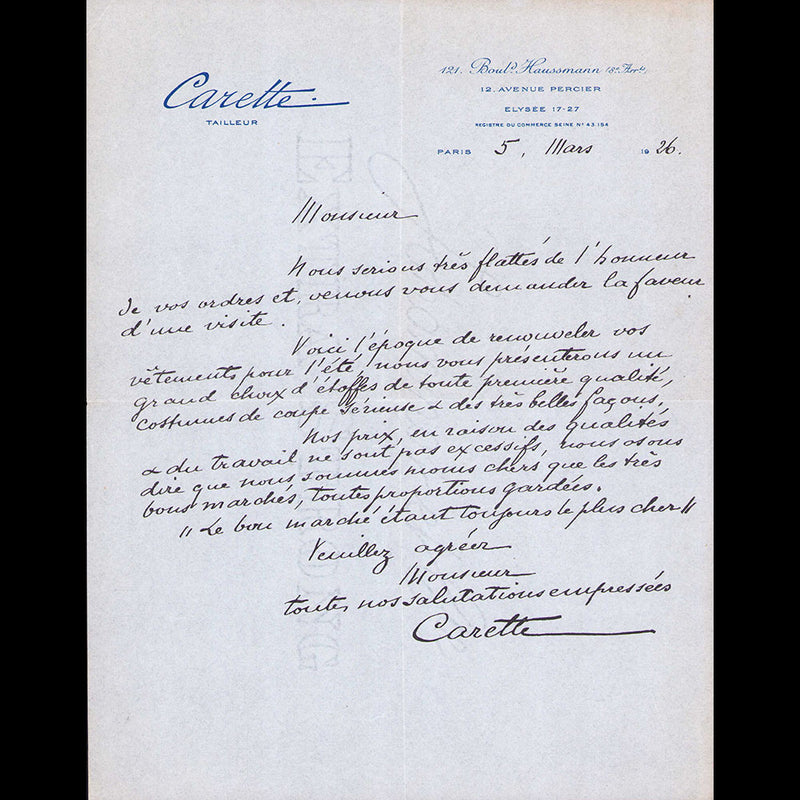 Carette
TAILLEUR
121. Boul.d Haussmann (8e Arrt)
12. AVENUE PERCIER
ELYSÉE 17-27
REGISTRE DU COMMERCE SEINE No 43.154
PARIS 5, Mars 1926.
Monsieur
Nous serions très flattés de l'honneur
de vos ordres et, venons vous demander la faveur
d'une visite.
Voici l'époque de renouveler vos
vêtements pour l'été, nous vous présenterons un
grand choix d'étoffes de toute première qualité,
costumes de coupe sérieuse & des très belles façons,
Nos prix, en raison des qualités
& du travail ne sont pas excessifs, nous osons
dire que nous sommes moins chers que les très
bons marchés, toutes proportions gardées.
"Le bon marché étant toujours le plus cher"
Veuillez agréer
Monsieur
toutes nos salutations empressées
Carette